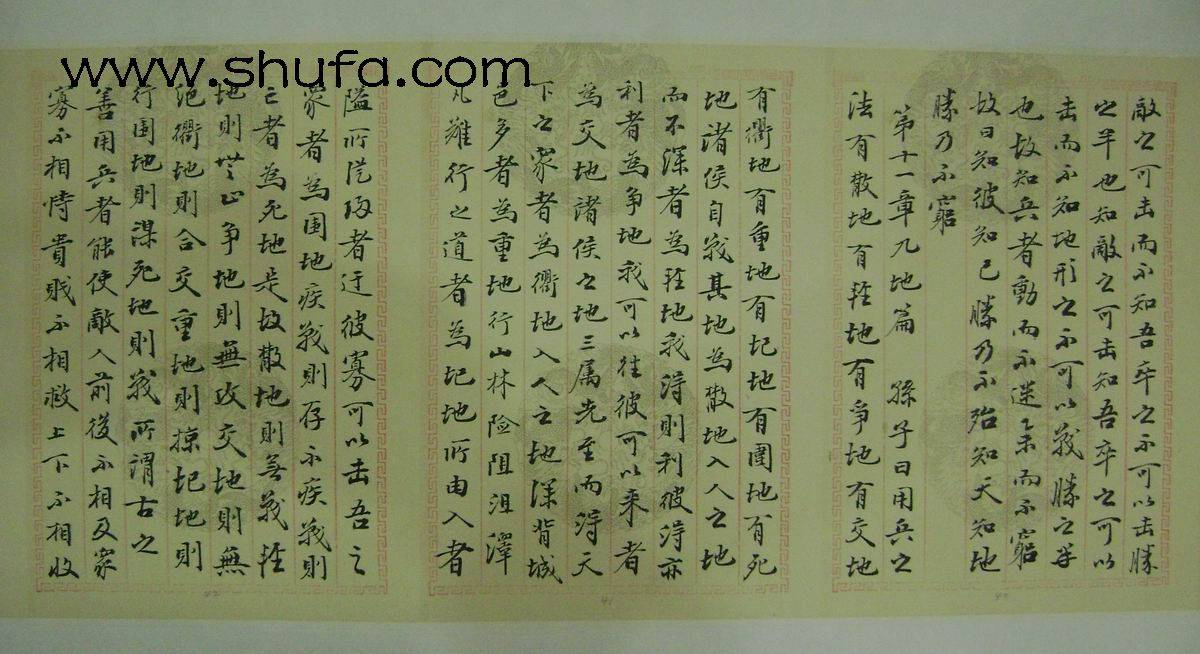 www.shufa.com
敵之可击而不知吾卒之不可以击勝
之半也知敵之可击知吾卒之可以
击而不知地形之不可以戰勝之半
也故知兵者動而不迷舉而不窮
故曰知彼知己勝乃不殆知天知地
勝乃不窮
第十一章九地篇 孫子曰用兵之
法有散地有轻地有爭地有交地
有衢地有重地有圮地有圍地有死
地諸侯自戰其地為散地入人之地
而不深者為轻地我得則利彼得亦
利者為争地我可以往彼可以来者
為交地諸侯之地三属先至而得天
下之衆者為衢地入人之地深背城
邑多者為重地行山林险阻沮澤
凡難行之道者為圮地所由入者
隘所從歸者迂彼寡可以击吾之
衆者為围地疾戰則存不疾戰則
亡者為死地是故散地則無戰轻
地則無止争地則無攻交地則無
绝衢地則合交重地則掠圮地則
行围地則谋死地則戰所謂古之
善用兵者能使敵人前後不相及衆
寡不相恃貴贱不相救上下不相收
40
41
42